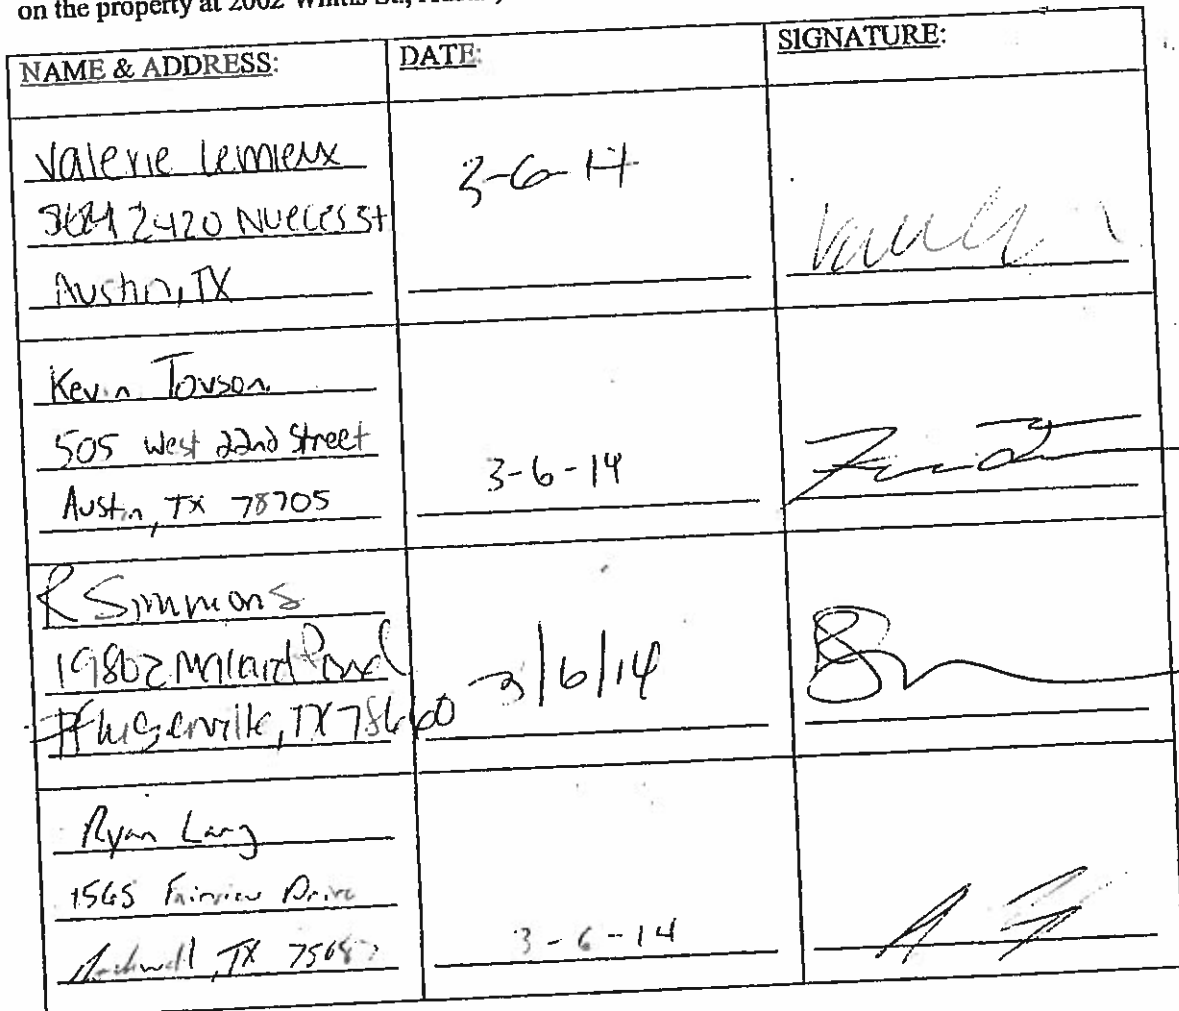 on the property at 2002 Whitis St.,
NAME & ADDRESS: DATE: SIGNATURE:
Valerie Lemieux
2420 Nueces St
Austin, TX
3-6-14
Kevin Tovson
505 West 22nd Street
Austin, TX 78705
3-6-14
R Simmons
19802 Mallard Pond
Pflugerville, TX 78660
3/6/14
Ryan Lang
1565 Fairview Drive
TX
3-6-14